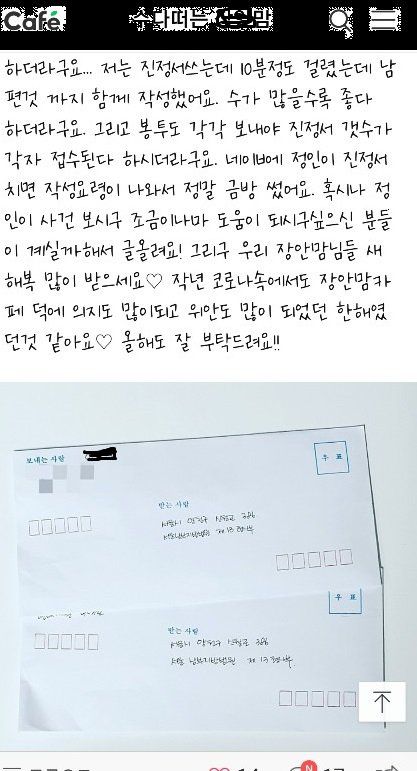 Café
수다떠는 맘
하더라구요... 저는 진정서쓰는데 10분정도 걸렸는데 남
편것 까지 함께 작성했어요. 수가 많을수록 좋다
하더라구요. 그리고 봉투도 각각 보내야 진정서 갯수가
각자 접수된다 하시더라구요. 네이버에 정인이 진정서
치면 작성요령이 나와서 정말 금방 썼어요. 혹시나 정
인이 사건 보시구 조금이나마 도움이 되시구싶으신 분들
이 계실까해서 글올려요! 그리구 우리 장안맘님들 새
해복 많이 받으세요♡ 작년 코로나속에서도 장안맘카
페 덕에 의지도 많이되고 위안도 많이 되었던 한해였
던것 같아요♡ 올해도 잘 부탁드려요!!
보내는 사람
우 표
받는 사람
서울시 양천구 신월로 386
서울남부지방법원 제13형사부
우 표
받는 사람
서울시 양천구 신월로 386
서울 남부지방법원 제13형사부
N
14
17